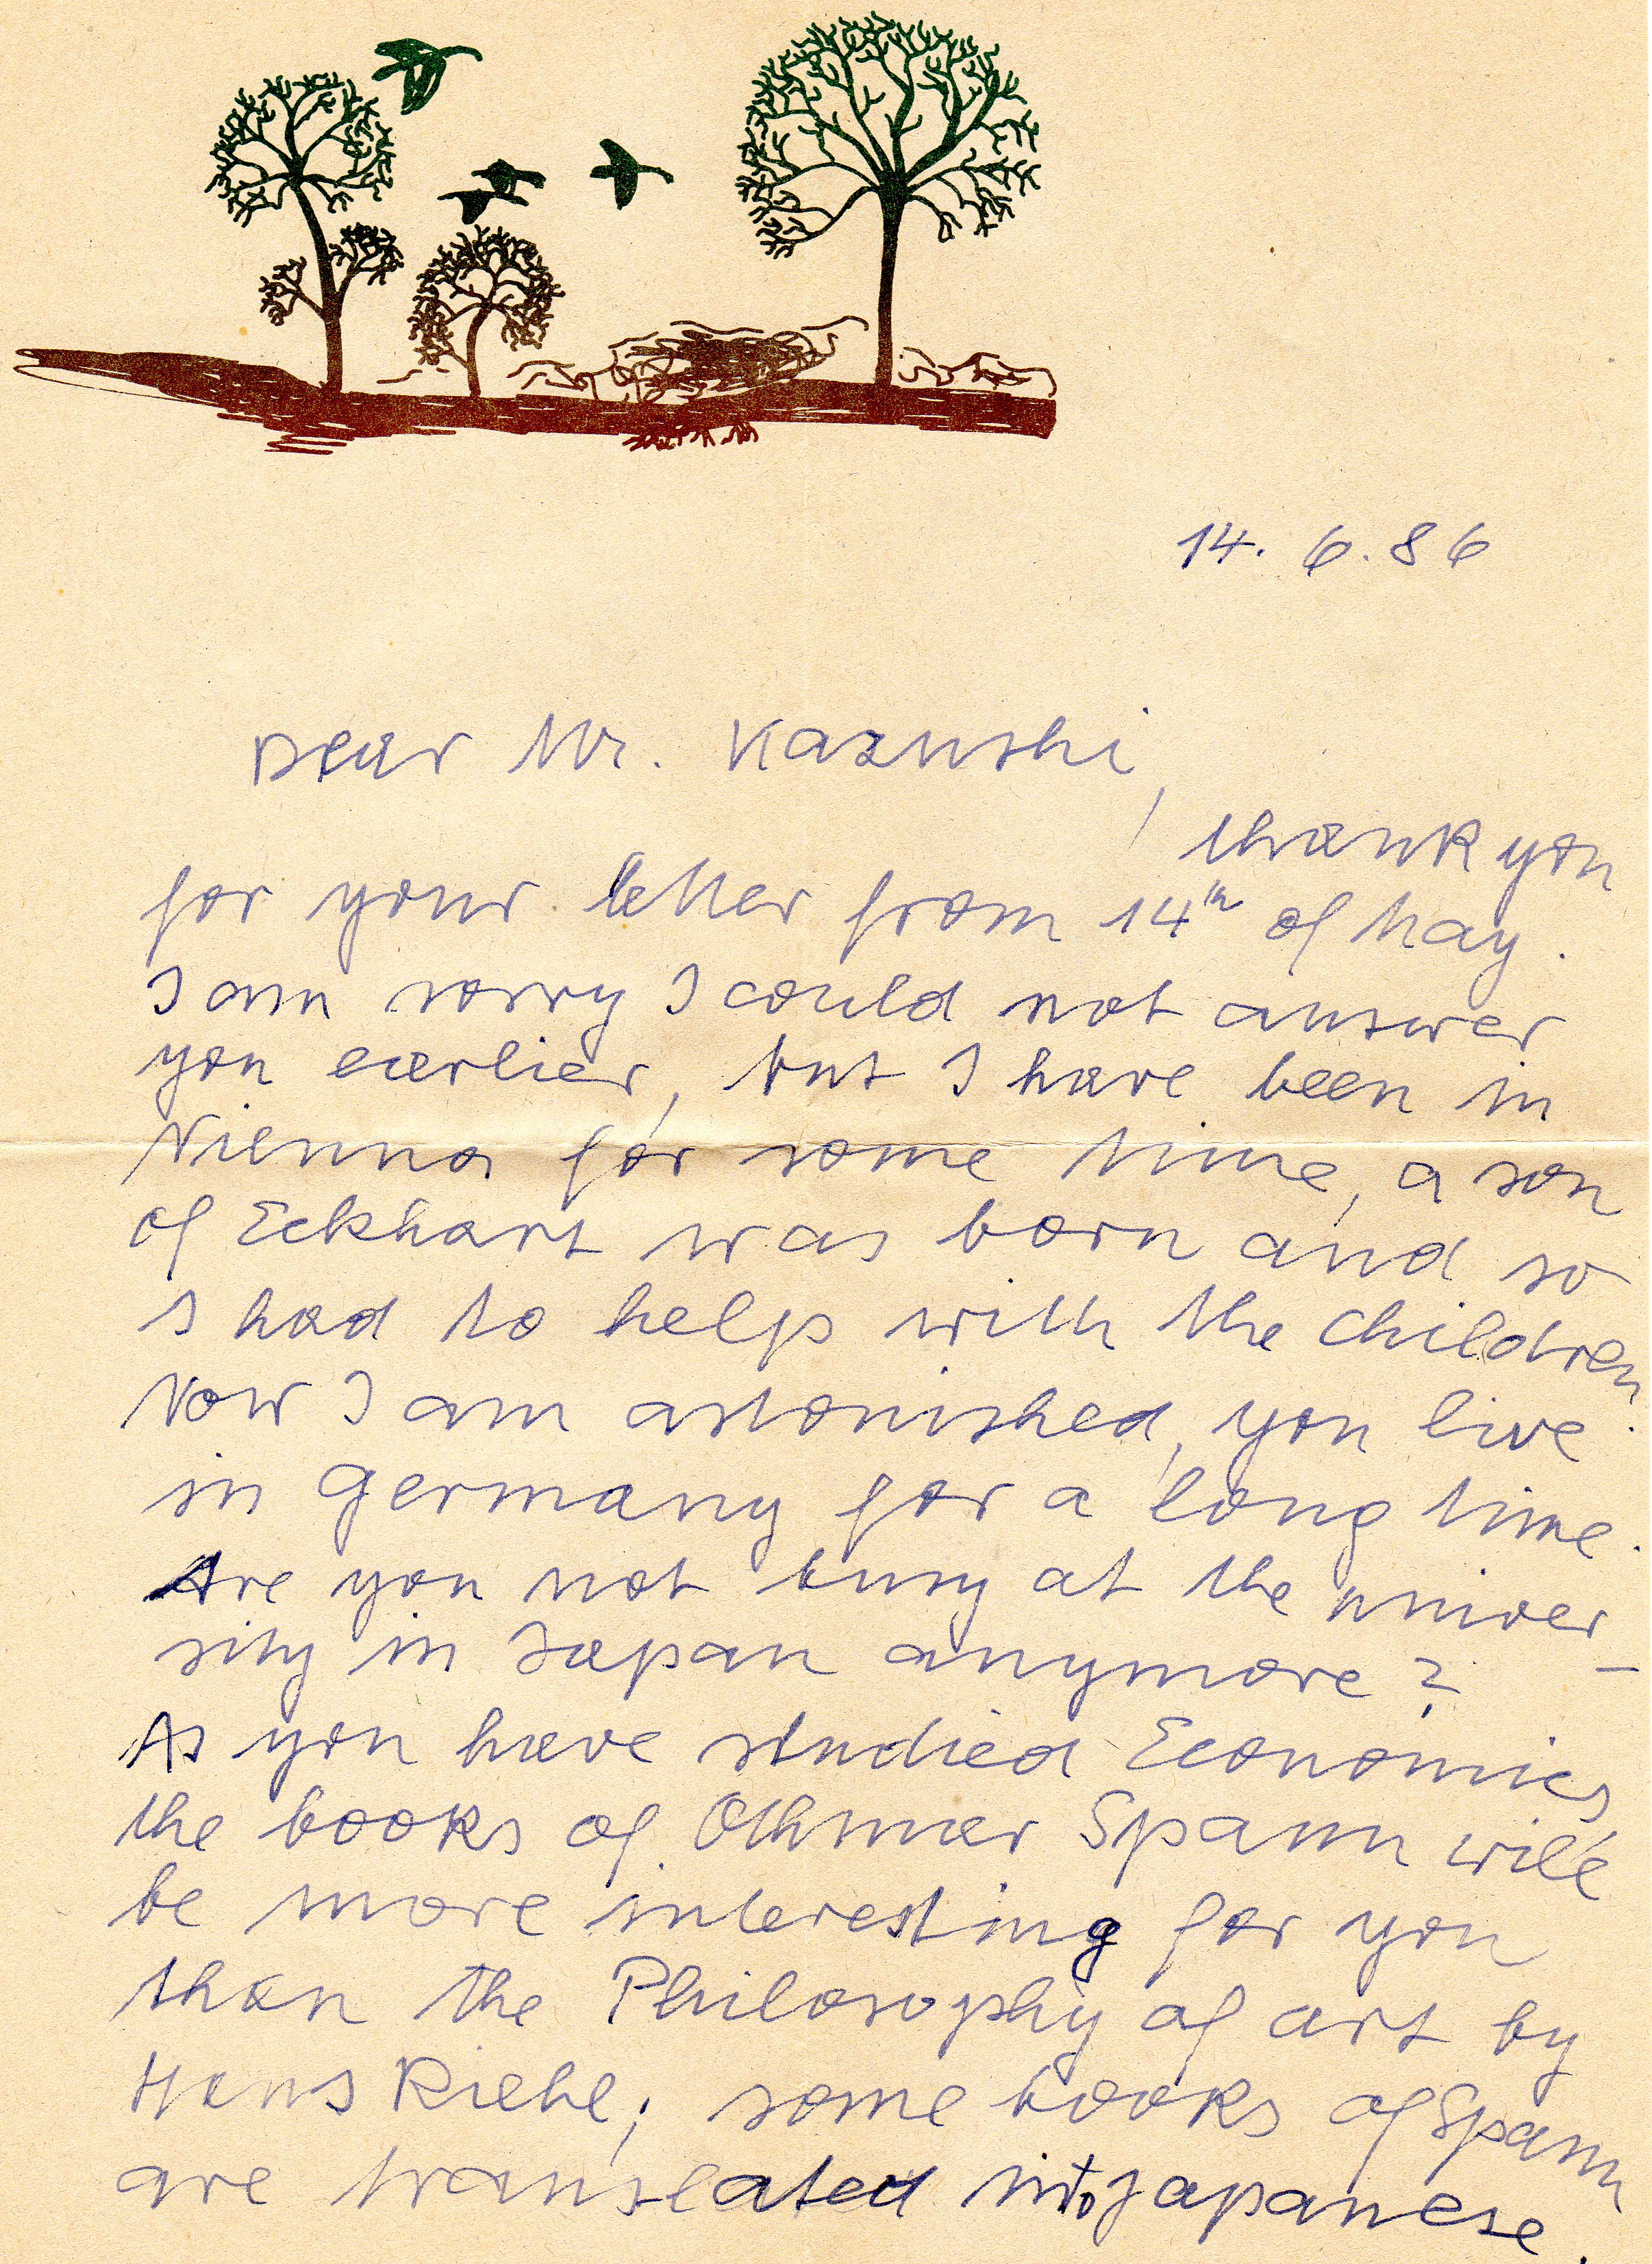 14. 6. 86
Dear Mr. Kazushi,
thank you
for your letter from 14th of May.
I am sorry I could not answer
you earlier, but I have been in
Vienna for some time, a son
of Eckhart was born and so
I had to help with the children.
Now I am astonished, you live
in Germany for a long time.
Are you not busy at the univer-
sity in Japan anymore?
As you have studied Economics
the books of Othmar Spann will
be more interesting for you
than the Philosophy of art by
Hans Riehl; some books of Spann
are translated into Japanese.